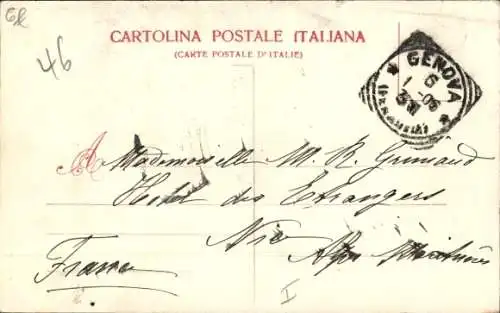 46
CARTOLINA POSTALE ITALIANA
(CARTE POSTALE D'ITALIE)
GENOVA
6
1-06
(FERROVIA)
A Mademoiselle M. R. Grimaud
Hotel des Etrangers
Nice
Alpes Maritimes
France
I